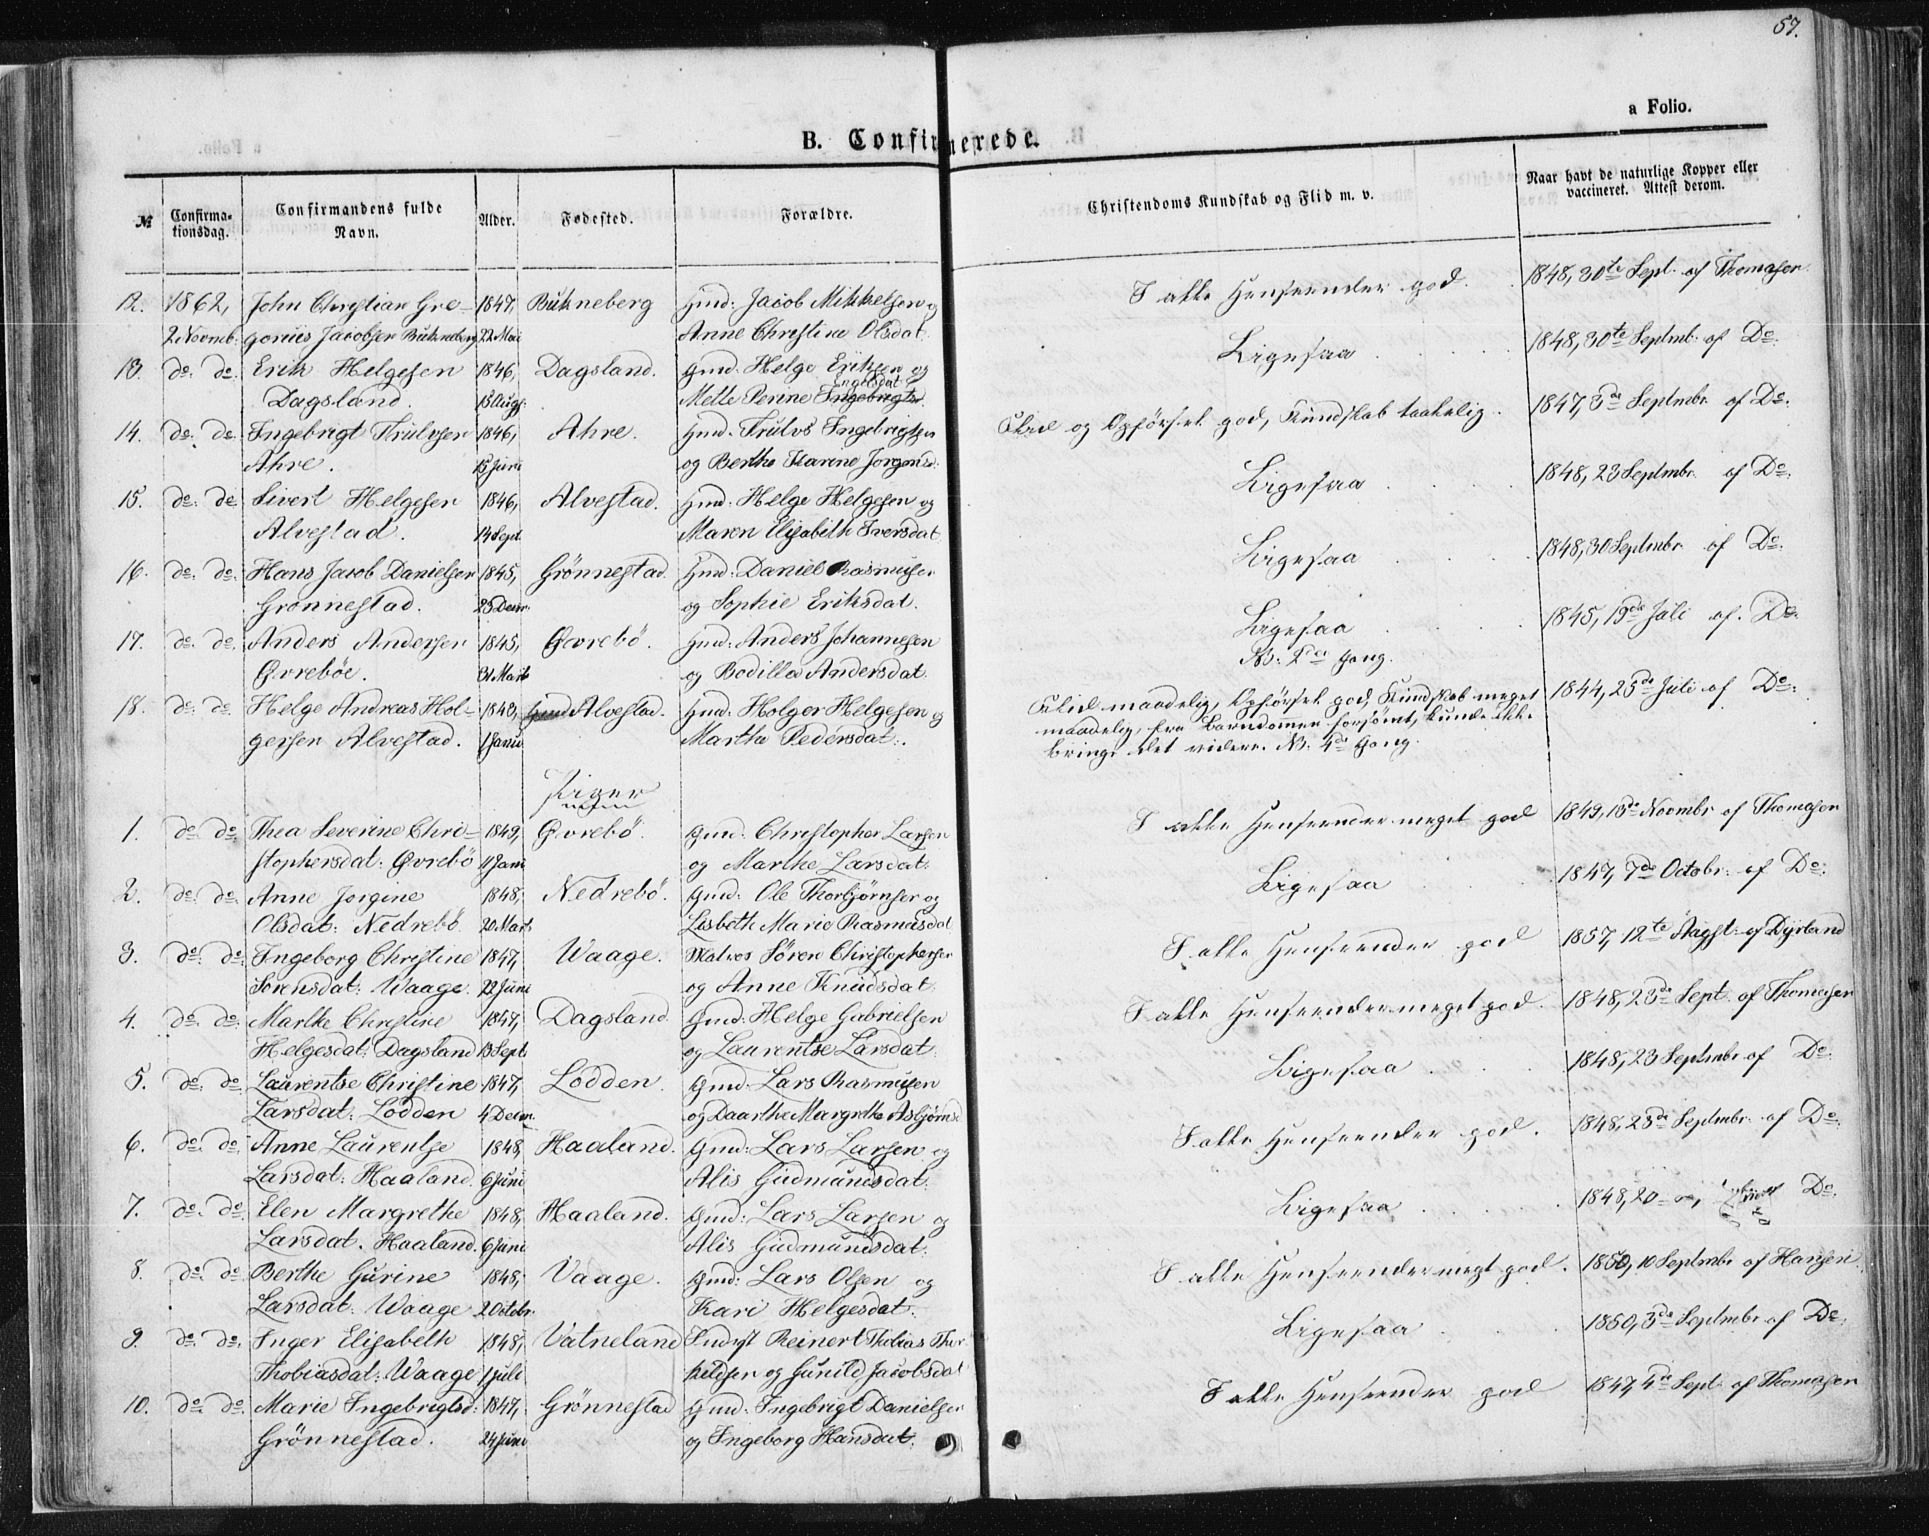 57.
a Folio.
B. Confirmerede.
№
Confirma-
tionsdag.
Confirmandens fulde
Navn.
Alder.
Fødested.
Forældre.
Christendoms Kundskab og Flid m. v.
Naar havt de naturlige Kopper eller
vaccineret. Attest derom.
12. 1862, John Christian Gre- 1847, Bukneberg Gmd: Jacob Mikkelsen og I alle Henseender god. 1848, 30te Sept. af Thomasen
2 Novmb: gorius Jacobsen Bukneberg 22 Mai Anne Christine Olsdat.
13. do: do: Erik Helgesen 1846, Dagsland. Gmd: Helge Eriksen og Ligesaa 1848, 30te Septmb: af Do:
Dagsland. 13 Aug: Mette Perine Engelsdat
14. do: do Ingebrigt Thulvsen 1846, Ahre. Gmd: Trulvs Ingebrigtsen Flid og Opførsel god, Kundskab taalelig. 1847, 3de Septmbr af Do:
Ahre. 15 Juni og Berthe Karine Jorgensd:
15. do: do Sivert Helgesen 1846, Alvestad. Gmd: Helge Helgesen og Ligesaa 1848, 23 Septmbr. af Do:
Alvestad. 14 Sept Maren Elisabeth Iversdat
16. do: do: Hans Jacob Danielsen 1845, Grönnestad. Gmd: Daniel Rasmusen Ligesaa 1848, 30 Septmbr af Do:
Grönnestad. 25 Decbr. og Sophie Eriksdat.
17. do: do: Anders Andersen 1845, Øvrebö. Gmd: Anders Johannesen Ligesaa 1845, 19de Juli af. Do:
Øvrebøe. 31 Marts og Bodilla Andersdat. NB: 2den Gang.
18. do: do Helge Andreas Hol- 1843, Alvestad. Gmd: Holger Helgesen og Flid maadelig, Opførsel god, Kundskab meget 1844, 25de Juli af Do:
gersen Alvestad. 1 Janu Marthe Pedersdat: maadelig, fra Barndommen forsömt, kunde ikke
bringe det videre. NB: 4de Gang.
Piger
1. do: do: Thea Severine Chri- 1849, Øvrebö. Gmd: Christopher Larsen I alle Henseender meget god 1849, 13de Novmbr af Thomasen
stophersdat: Øvrebö 11 Janu og Marthe Larsdat:
2. do: do: Anne Jorgine 1848, Nedrebö. Gmd: Ole Thorbjörnsen og Ligesaa 1847, 7de Octobr: af Do:
Olsdat: Nedrebö 20 Marts Lisbeth Marie Rasmusdat
3. do: do: Ingeborg Christine 1847, Waage. Matros Sören Christophersen I alle Henseender god 1857, 12te Augst: af Dyrland
Sörensdat: Waage. 22 Juni og Anne Knudsdat.
4. do: do: Marthe Christine 1847, Dagsland. Gmd: Helge Gabrielsen I alle Henseender meget god. 1848, 23de Sept: af Thomasen
Helgesdat: Dagsland 13 Sept og Laurentse Larsdat.
5. do: do: Laurentse Christine 1847, Lodden. Gmd: Lars Rasmusen Ligesaa 1848, 23 Septmbr af Do:
Larsdat: Lodden 4 Decm. og Daarthe Margrethe Asbjørnsd
6. do: do: Anne Laurentse 1848, Haaland. Gmd: Lars Larsen og I alle Henseender god. 1848, 23de Septmbr. af Do:
Larsdat: Haaland. 6 Juni Alis Gudmundsdat:
7. do: do: Elen Margrethe 1848, Haaland. Gmd: Lars Larsen og Ligesaa 1848, 20 Do:
Larsdat. Haaland. 6 Juni Alis Gudmundsdat:
8. do: do: Berthe Gurine 1848, Vaage. Gmd: Lars Olsen og I alle Henseender megt god. 1850, 10 Septmbr af Hansen
Larsdat: Waage 2 Octobr. Kari Helgesdat.
9. do: do: Inger Elisabeth 1848, Vatneland Indrst Reinert Thobias Thor- Ligesaa 1850, 3de Septmbr af Do:
Thobiasdat: Waage 1 Juli kildsen og Gunild Jacobsdat
10. do: do: Marie Ingebrigtsd: 1847, Grönnestad Gmd: Ingebrigt Danielsen I alle Henseender god 1847, 4de Sept: af Thomasen
Grönnestad. 24 Juni og Ingeborg Hansdat.